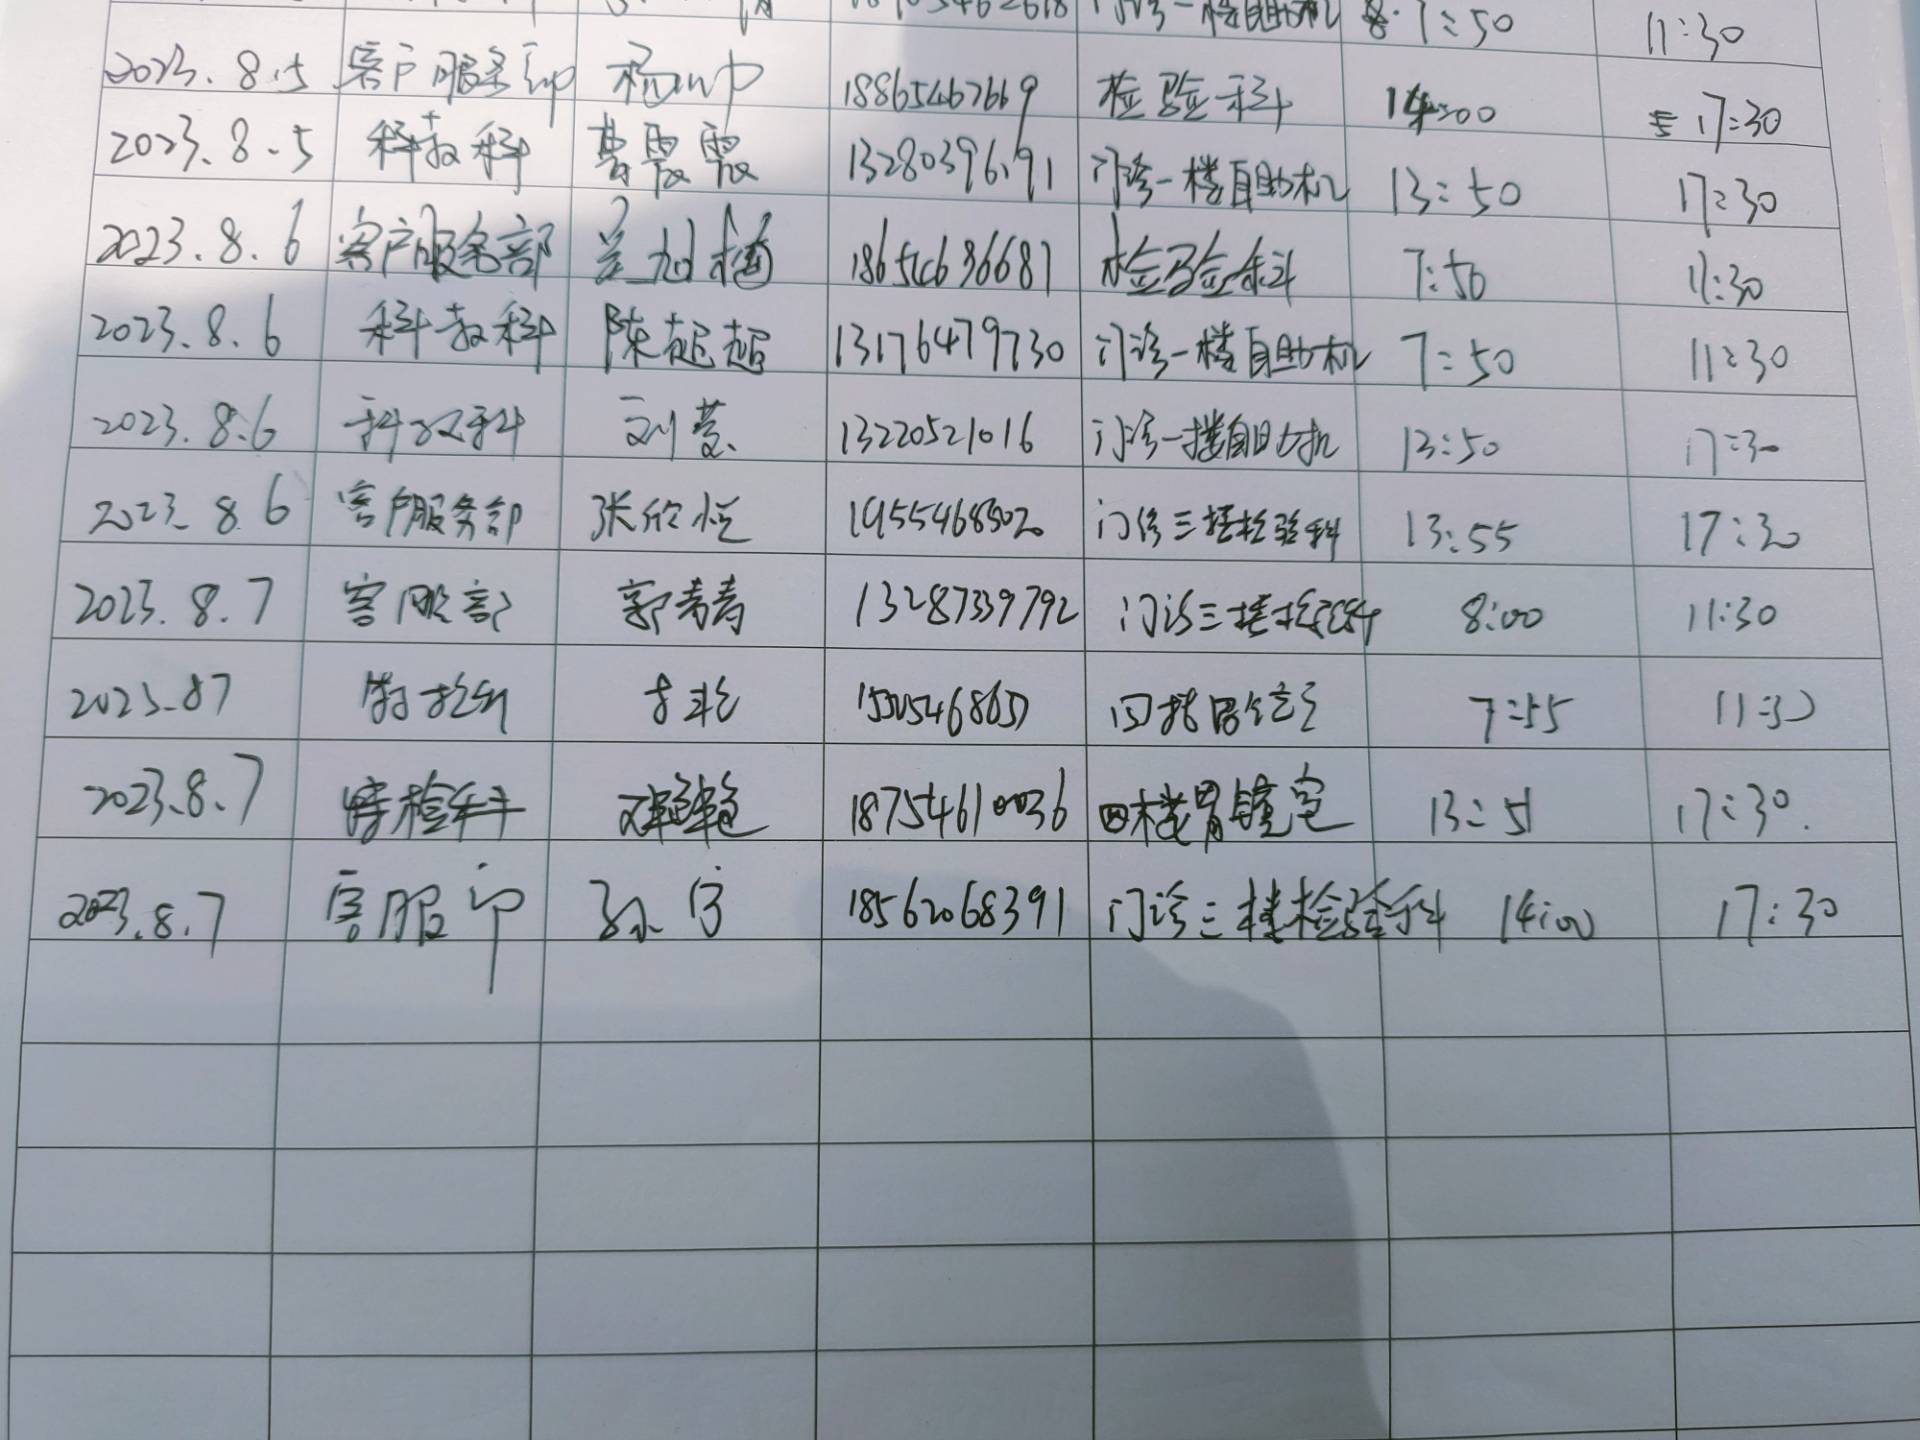 门诊一楼自助机 7:50 11:30
2023.8.5 客户服务部 杨帅 18865467669 检验科 14:00 17:30
2023.8.5 科教科 曹霞霞 13280396191 门诊一楼自助机 13:50 17:30
2023.8.6 客户服务部 兰旭梅 18654686681 检验科 7:50 11:30
2023.8.6 科教科 陈超超 13176479730 门诊一楼自助机 7:50 11:30
2023.8.6 科教科 刘莹 13220521016 门诊一楼自助机 13:50 17:30
2023.8.6 客户服务部 张欣恒 门诊三楼检验科 13:55 17:30
2023.8.7 客服部 郭青青 13287339792 门诊三楼检验科 8:00 11:30
2023.8.7 特检科 四楼胃镜室 7:55 11:30
2023.8.7 特检科 18754610036 四楼胃镜室 13:51 17:30
2023.8.7 客服部 孙宁 18562068391 门诊三楼检验科 14:00 17:30